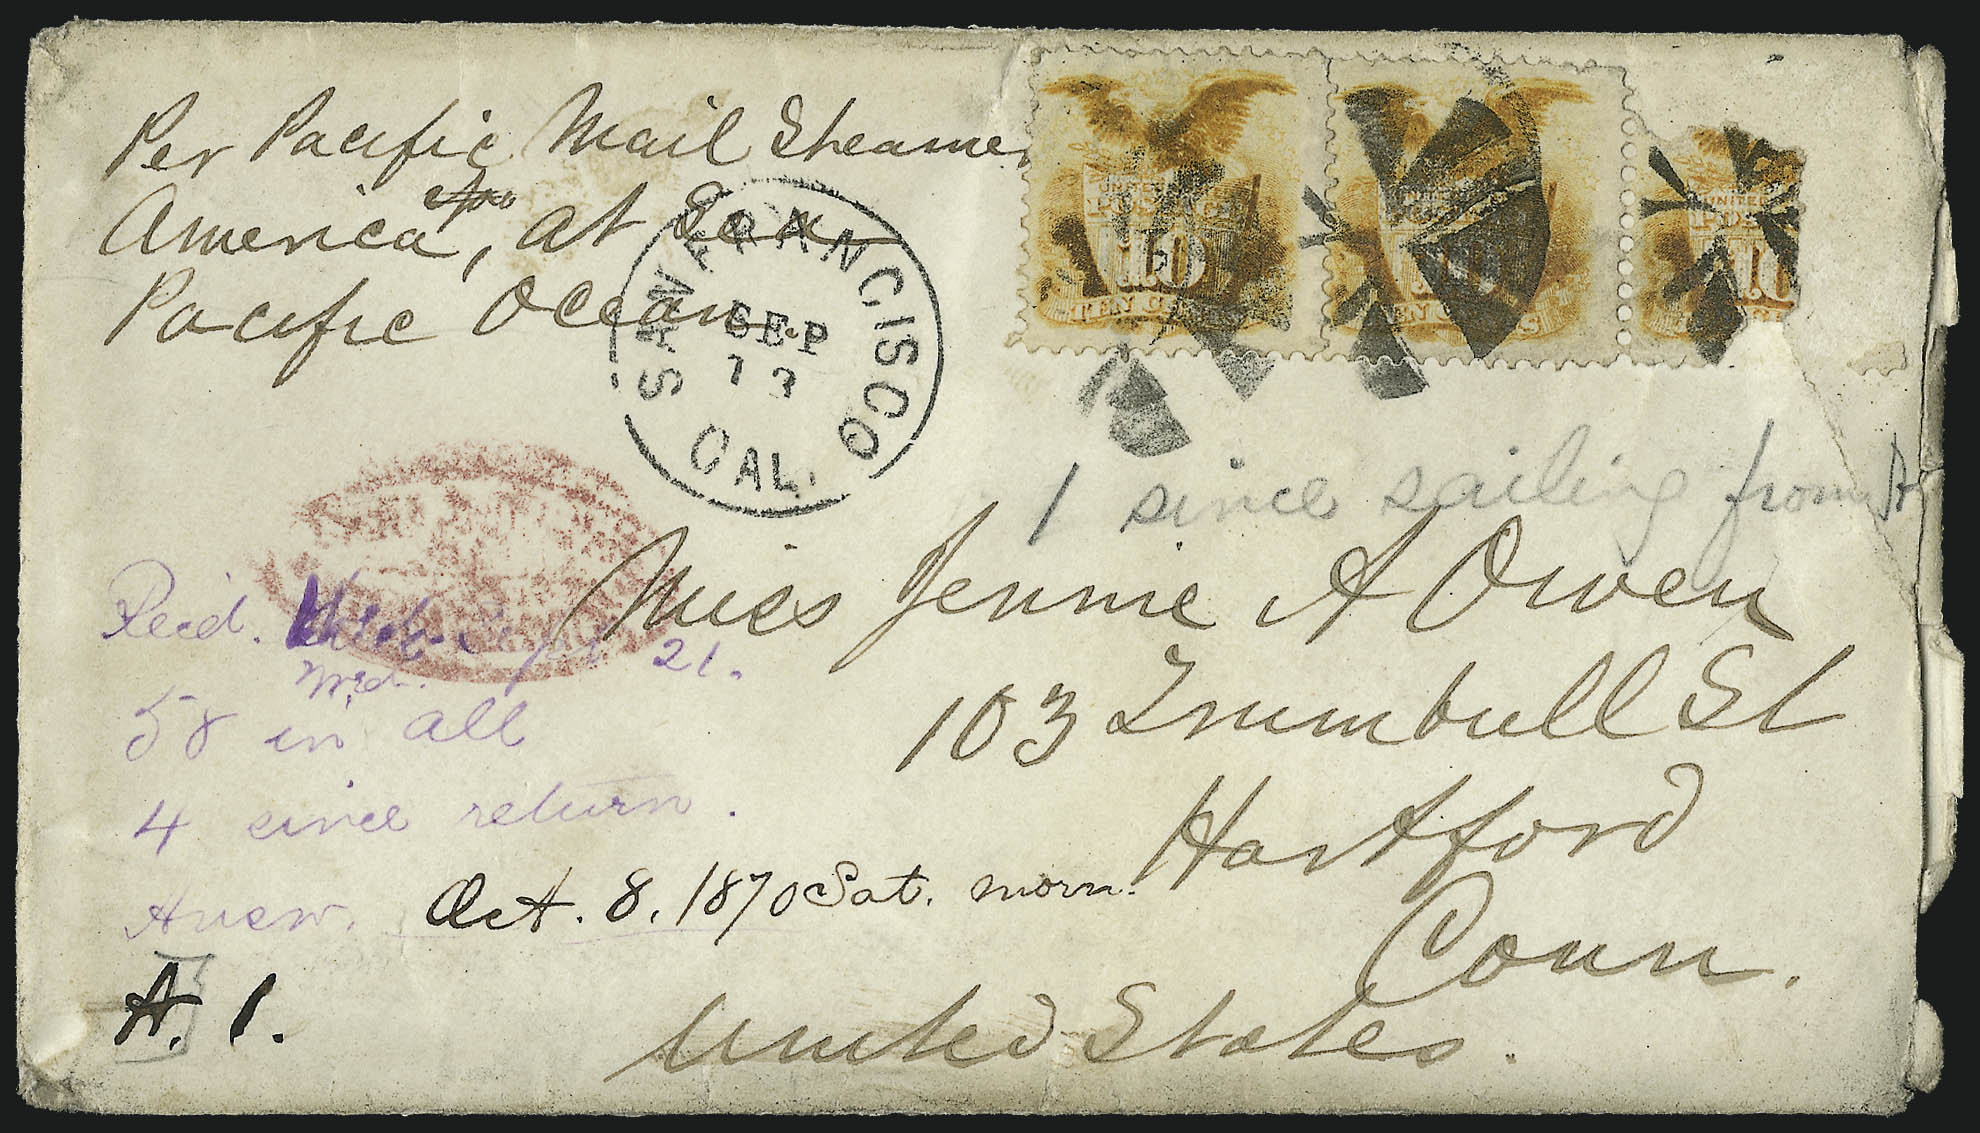 Per Pacific Mail Steamer
America, at Sea
Pacific Ocean.
SAN FRANCISCO
SEP
13
CAL.
UNITED
POSTAGE
10
TEN CENTS
10
EN CENTS
UNITED
POS
10
1 since sailing from
Miss Jennie A Owen
103 Trumbull St
Hartford
Conn.
United States.
Recd. 21.
58 in all
4 since return.
Answ. Oct. 8. 1870 Sat. morn.
A. 1.